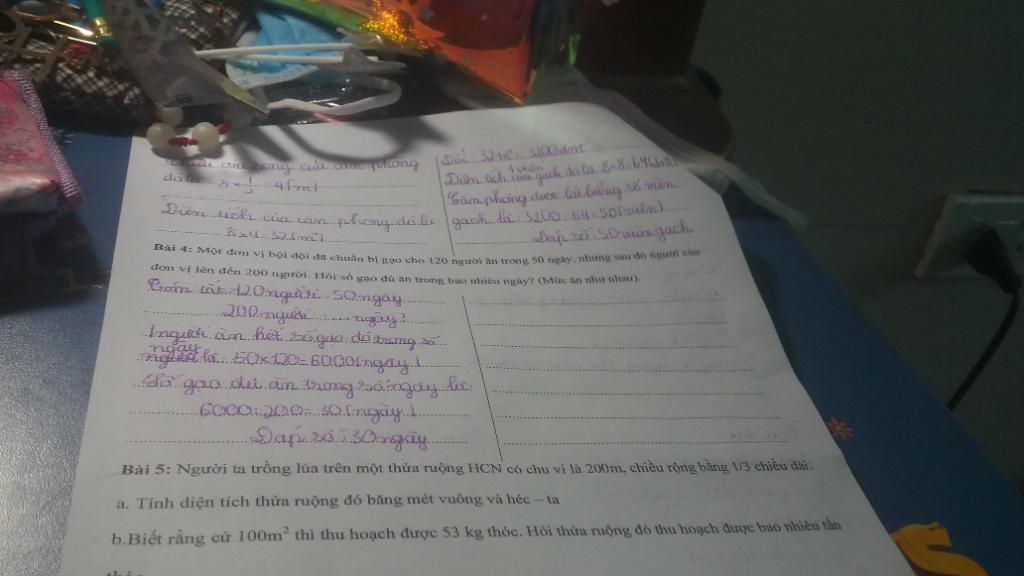 Chiều rộng của căn phòng
đó là: 8 × 1/2 = 4 (m)
Diện tích của căn phòng đó là
8 x 4 = 32 (m²)
Đổi: 32m² = 3200dm²
Diện tích 1 viên gạch đó là 8 x 8 = 64 (dm²)
Căn phòng được lát bằng số viên
gạch là: 3200 : 64 = 50 (viên)
Đáp số: 50 viên gạch
Bài 4: Một đơn vị bội đội đã chuẩn bị gạo cho 120 người ăn trong 50 ngày, nhưng sau đó người của
đơn vị lên đến 200 người. Hỏi số gạo đủ ăn trong bao nhiêu ngày? (Mức ăn như nhau).
Tóm tắt: 120 người: 50 ngày
200 người: ... ngày?
1 người ăn hết số gạo đó trong số
ngày là: 50 x 120 = 6000 (ngày)
Số gạo đủ ăn trong số ngày là:
6000 : 200 = 30 (ngày)
Đáp số: 30 ngày
Bài 5: Người ta trồng lúa trên một thửa ruộng HCN có chu vi là 200m, chiều rộng bằng 1/3 chiều dài.
a. Tính diện tích thửa ruộng đó bằng mét vuông và héc – ta
b.Biết rằng cứ 100m² thì thu hoạch được 53 kg thóc. Hỏi thửa ruộng đó thu hoạch được bao nhiêu tấn